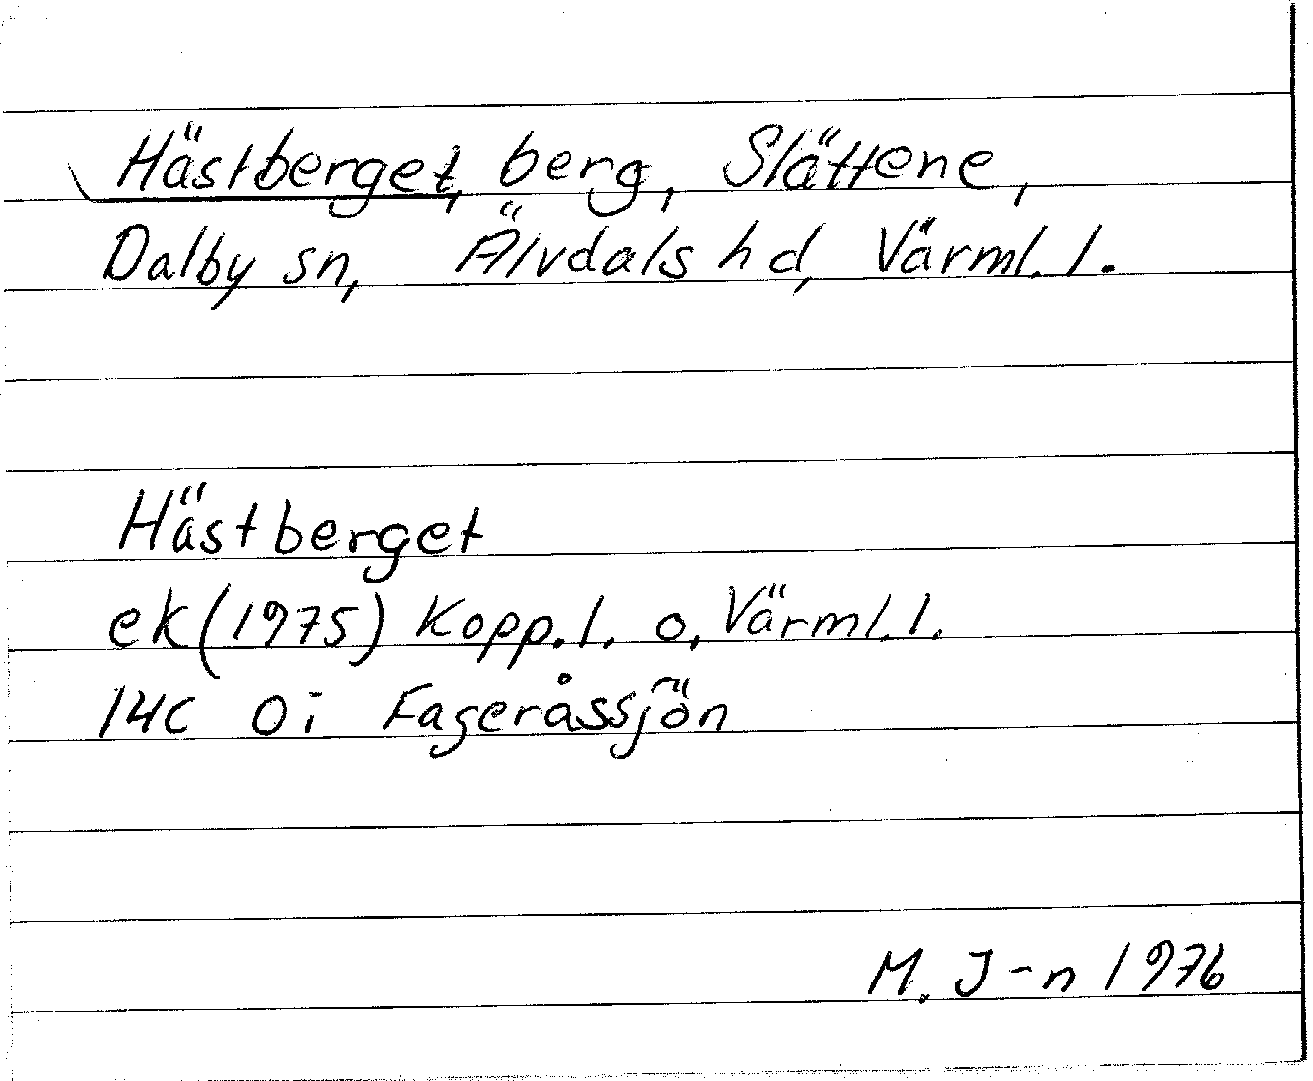 Hästberget, berg, Slättene,
Dalby sn, Älvdals hd, Värml. l.
Hästberget
ek (1975) Kopp. l. o, Värml. l.
14C 0i Fageråssjön
M. J-n 1976